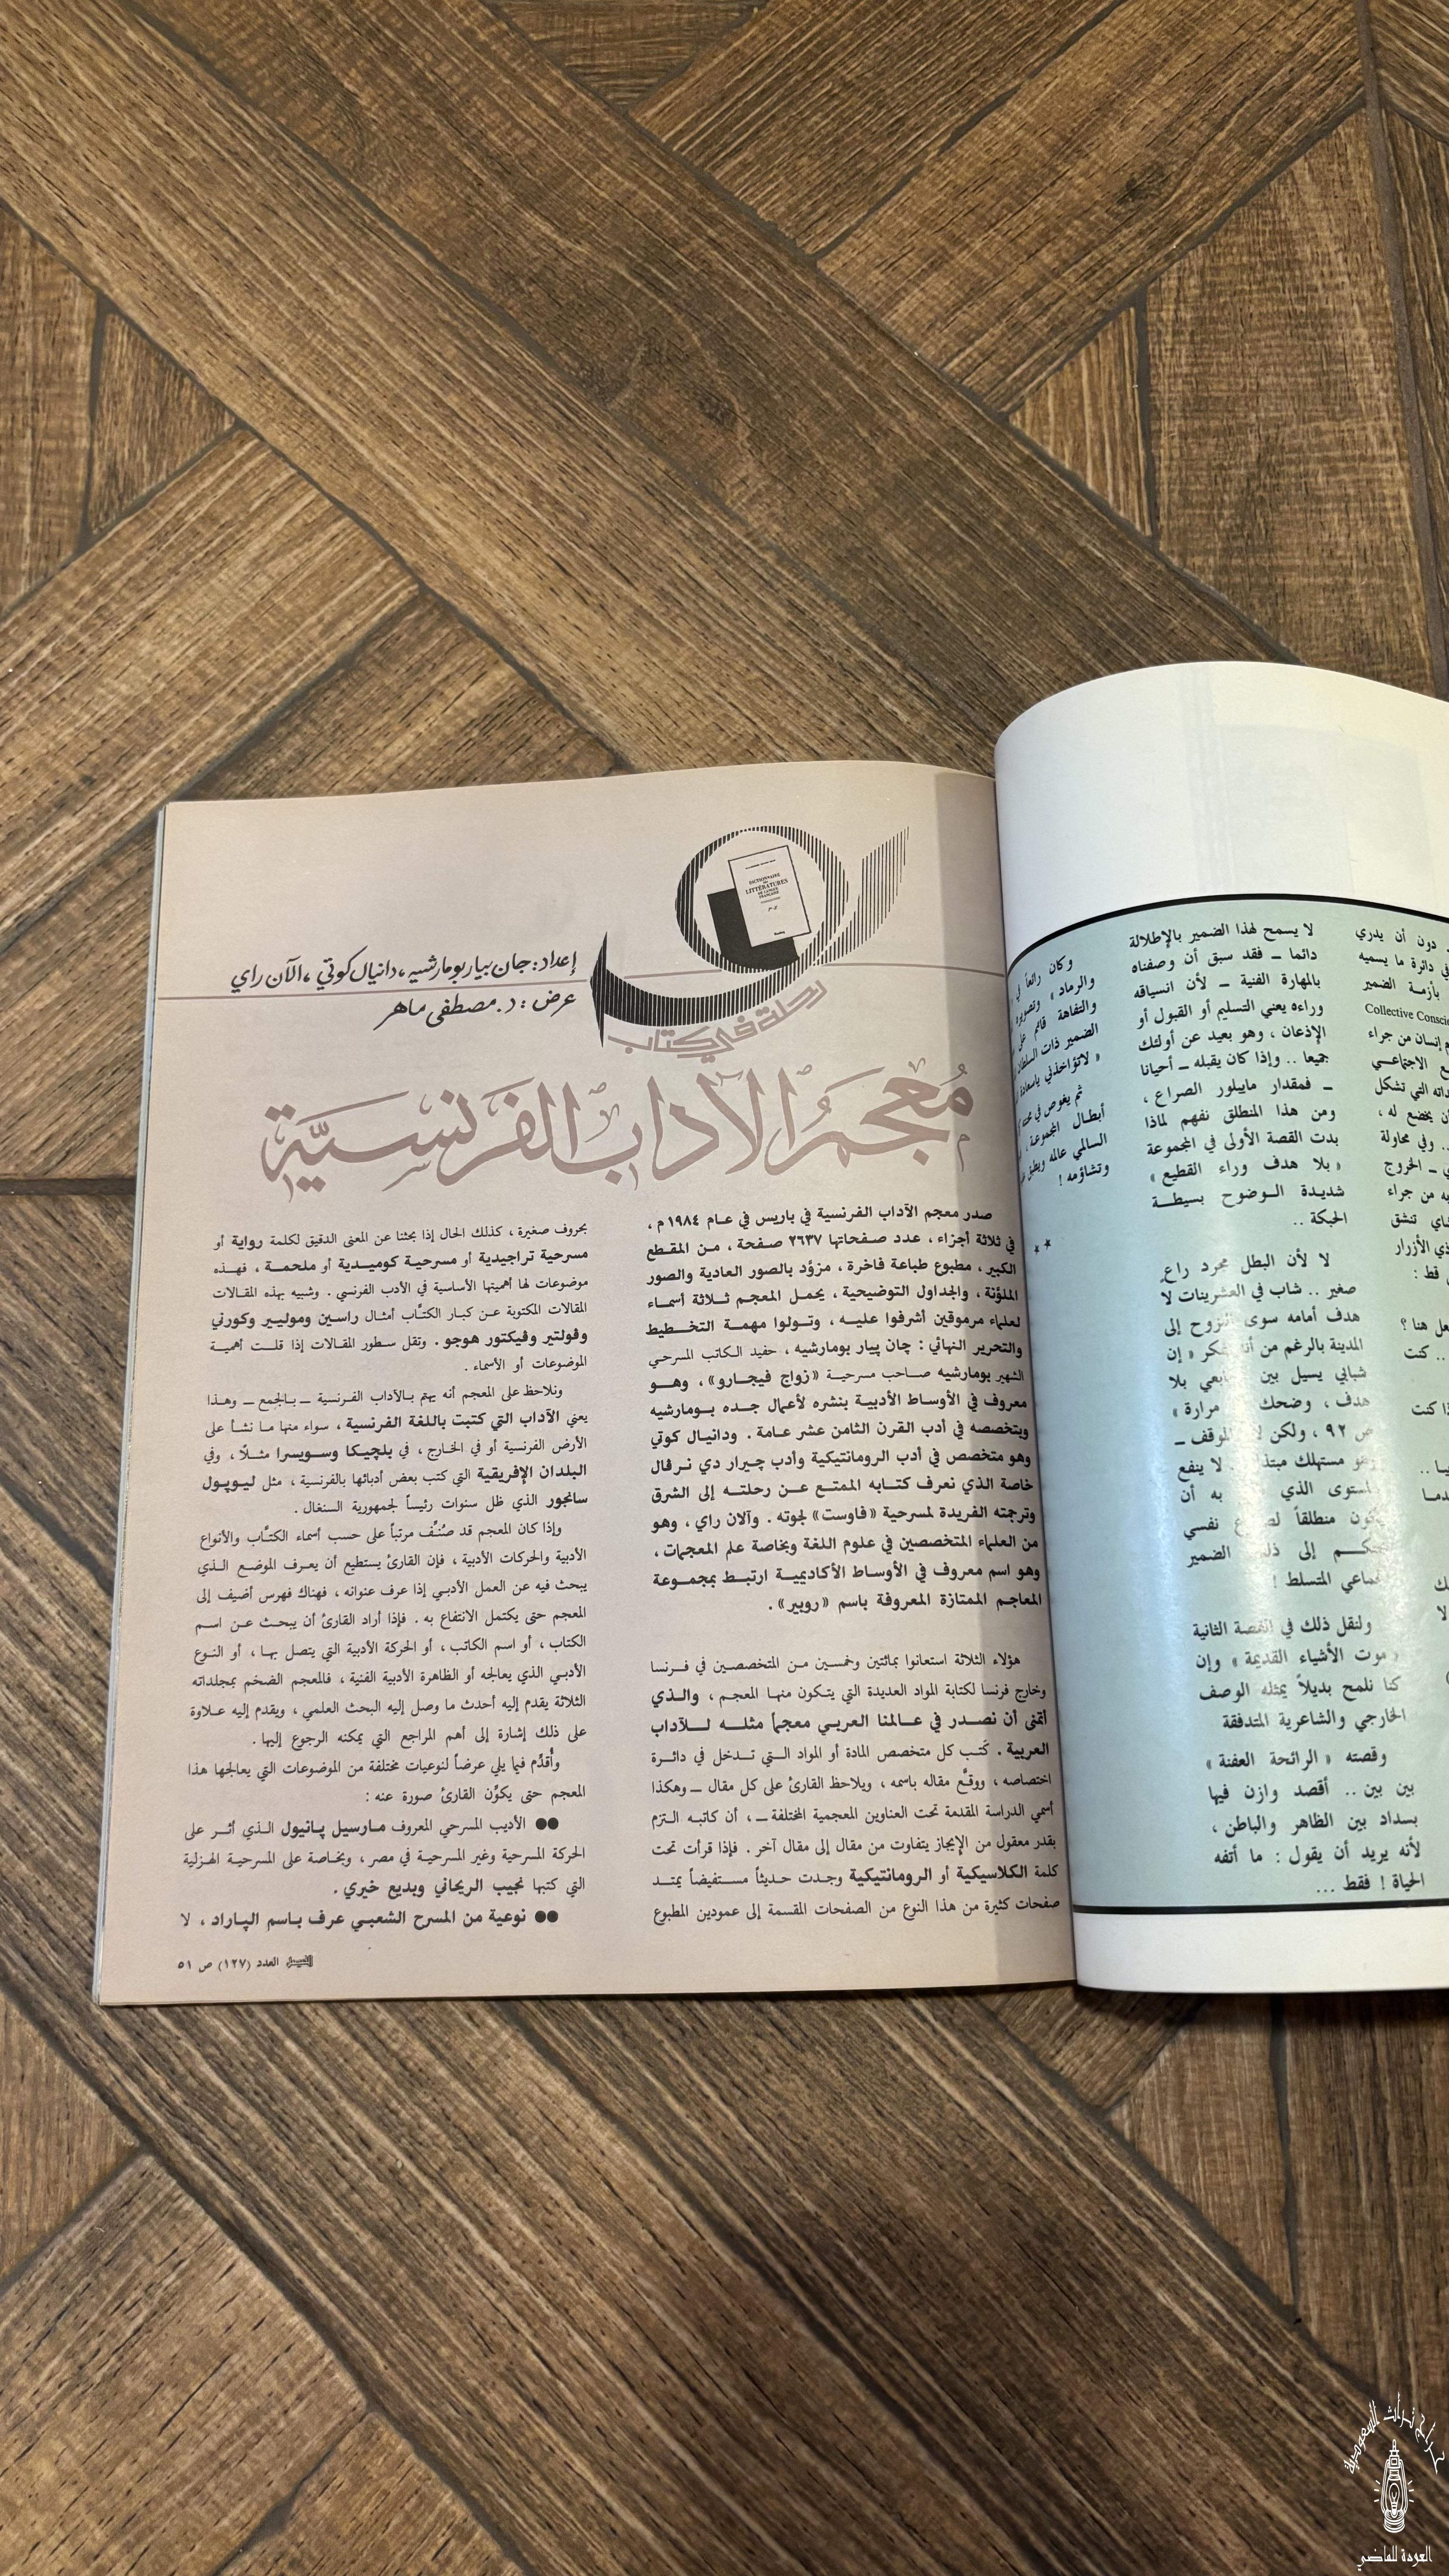 دون أن يدري
في دائرة ما يسميه
بأزمة الضمير
Collective Consci
إنسان من جراء
الاجتماعي
التي تشكل
أن يخضع له ،
.. وفي محاولة
ي ــ الخروج
به من جراء
تنشق
ذي الأزرار
قط :
هنا ؟
.. كنت
ذا كنت
لا يسمح لهذا الضمير بالإطلالة
دائما ــ فقد سبق أن وصفناه
بالمهارة الفنية ــ لأن انسياقه
وراءه يعني التسليم أو القبول أو
الإذعان ، وهو بعيد عن أولئك
جميعا .. وإذا كان يقبله ــ أحيانا
ــ فمقدار مايبلور الصراع ،
ومن هذا المنطلق نفهم لماذا
بدت القصة الأولى في المجموعة
« بلا هدف وراء القطيع »
شديدة الوضوح بسيطة
الحبكة ..
لا لأن البطل مجرد راع
صغير .. شاب في العشرينات لا
هدف أمامه سوى النزوح إلى
المدينة بالرغم من أنه يفكر « إن
شبابي يسيل بين أصابعي بلا
هدف ، وضحك مرارة »
ص ٩٢ ، ولكن الموقف ــ
وهو مستهلك لا ينفع
المستوى الذي به أن
يكون منطلقاً نفسي
إلى الضمير
الجماعي المتسلط !
ولنقل ذلك في القصة الثانية
« موت الأشياء القديمة » وإن
كنا نلمح بديلاً يمثله الوصف
الخارجي والشاعرية المتدفقة
وقصته « الرائحة العفنة »
بين بين .. أقصد وازن فيها
بسداد بين الظاهر والباطن ،
لأنه يريد أن يقول : ما أتفه
الحياة ! فقط ...
وكان رائعاً في
والرماد » وتصويره
والتفاهة قائم على
الضمير ذات السلطان
« لاتؤاخذني ياسعادة
ثم يغوص في
أبطال المجموعة ،
السالمي عالمه ويطبق
وتشاؤمه !
* *
DICTIONNAIRE
LITTÉRATURES
DE LANGUE
FRANÇAISE
رحلة في كتاب
إعداد: جان بيار بومارشيه، دانيال كوتي ، الآن راي
عرض : د. مصطفى ماهر
مُعجم الآداب الفرنسيّة
صدر معجم الآداب الفرنسية في باريس في عام ١٩٨٤م ،
في ثلاثة أجزاء ، عدد صفحاتها ٢٦٣٧ صفحة ، من المقطع
الكبير ، مطبوع طباعة فاخرة ، مزوَّد بالصور العادية والصور
الملوَّنة ، والجداول التوضيحية ، يحمل المعجم ثلاثة أسماء
لعلماء مرموقين أشرفوا عليه ، وتولوا مهمة التخطيط
والتحرير النهائي : چان پيار بومارشيه ، حفيد الكاتب المسرحي
الشهير بومارشيه صاحب مسرحية «زواج فيجارو» ، وهو
معروف في الأوساط الأدبية بنشره لأعمال جده بومارشيه
وبتخصصه في أدب القرن الثامن عشر عامة . ودانيال كوتي
وهو متخصص في أدب الرومانتيكية وأدب چيرار دي نرفال
خاصة الذي نعرف كتابه الممتع عن رحلته إلى الشرق
وترجمته الفريدة لمسرحية «فاوست» لجوته . وآلان راي ، وهو
من العلماء المتخصصين في علوم اللغة وبخاصة علم المعجمات ،
وهو اسم معروف في الأوساط الأكاديمية ارتبط بمجموعة
المعاجم الممتازة المعروفة باسم «روبير» .
هؤلاء الثلاثة استعانوا بمائتين وخمسين من المتخصصين في فرنسا
وخارج فرنسا لكتابة المواد العديدة التي يتكون منها المعجم ، والذي
أتمنى أن نصدر في عالمنا العربي معجماً مثله للآداب
العربية . كَتب كل متخصص المادة أو المواد التي تدخل في دائرة
اختصاصه ، ووقَّع مقاله باسمه ، ويلاحظ القارئ على كل مقال ــ وهكذا
أسمي الدراسة المقدمة تحت العناوين المعجمية المختلفة ــ ، أن كاتبه التزم
بقدر معقول من الإيجاز يتفاوت من مقال إلى مقال آخر . فإذا قرأت تحت
كلمة الكلاسيكية أو الرومانتيكية وجدت حديثاً مستفيضاً يمتد
صفحات كثيرة من هذا النوع من الصفحات المقسمة إلى عمودين المطبوع
بحروف صغيرة ، كذلك الحال إذا بحثنا عن المعنى الدقيق لكلمة رواية أو
مسرحية تراجيدية أو مسرحية كوميدية أو ملحمة ، فهذه
موضوعات لها أهميتها الأساسية في الأدب الفرنسي . وشبيه بهذه المقالات
المقالات المكتوبة عن كبار الكتّاب أمثال راسين وموليير وكورني
وڤولتير وڤيكتور هوجو . وتقل سطور المقالات إذا قلت أهمية
الموضوعات أو الأسماء .
ونلاحظ على المعجم أنه يهتم بالآداب الفرنسية ــ بالجمع ــ وهذا
يعني الآداب التي كتبت باللغة الفرنسية ، سواء منها ما نشأ على
الأرض الفرنسية أو في الخارج ، في بلچيكا وسويسرا مثلاً ، وفي
البلدان الإفريقية التي كتب بعض أدبائها بالفرنسية ، مثل ليوپول
سانجور الذي ظل سنوات رئيساً لجمهورية السنغال .
وإذا كان المعجم قد صُنِّف مرتباً على حسب أسماء الكتّاب والأنواع
الأدبية والحركات الأدبية ، فإن القارئ يستطيع أن يعرف الموضع الذي
يبحث فيه عن العمل الأدبي إذا عرف عنوانه ، فهناك فهرس أضيف إلى
المعجم حتى يكتمل الانتفاع به . فإذا أراد القارئ أن يبحث عن اسم
الكتاب ، أو اسم الكاتب ، أو الحركة الأدبية التي يتصل بها ، أو النوع
الأدبي الذي يعالجه أو الظاهرة الأدبية الفنية ، فالمعجم الضخم بمجلداته
الثلاثة يقدم إليه أحدث ما وصل إليه البحث العلمي ، ويقدم إليه علاوة
على ذلك إشارة إلى أهم المراجع التي يمكنه الرجوع إليها .
وأقدِّم فيما يلي عرضاً لنوعيات مختلفة من الموضوعات التي يعالجها هذا
المعجم حتى يكوِّن القارئ صورة عنه :
●● الأديب المسرحي المعروف مارسيل پانيول الذي أثر على
الحركة المسرحية وغير المسرحية في مصر ، وبخاصة على المسرحية الهزلية
التي كتبها نجيب الريحاني وبديع خيري .
●● نوعية من المسرح الشعبي عرف باسم الپاراد ، لا
الفيصل العدد (١٢٧) ص ٥١
حراج تراث السعودية
العودة للماضي